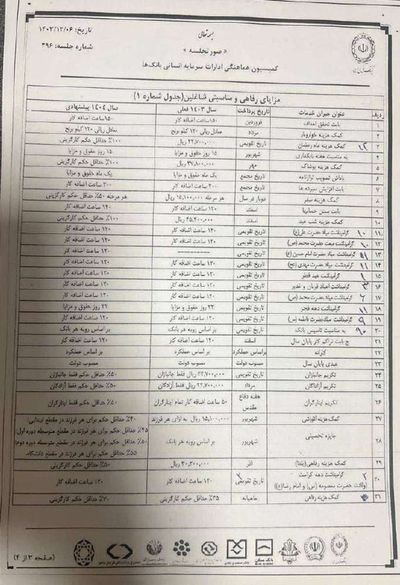 بسمه تعالی
تاریخ: ۱۴۰۳/۱۲/۰۶
شماره جلسه: ۳۹۶
« صورتجلسه »
کمیسیون هماهنگی ادارات سرمایه انسانی بانک‌ها
مزایای رفاهی و مناسبتی شاغلین(جدول شماره ۱)
ردیف عنوان جبران خدمات تاریخ پرداخت سال ۱۴۰۳ فعلی سال ۱۴۰۴ پیشنهادی
۱ بابت تحقق اهداف فروردین ۱۵۰ ساعت اضافه کار ۱۵۰ ساعت اضافه کار
۲ کمک هزینه خواروبار مرداد معادل ریالی ۱۲۰ کیلو برنج معادل ریالی ۱۲۰ کیلو برنج
۳ کمک هزینه ماه رمضان تاریخ تقویمی ۲۲,۷۰۰,۰۰۰ ریال ۱۰۰٪ حداقل حکم کارگزینی
۴ به مناسبت هفته بانکداری شهریور ۱۵ روز حقوق و مزایا ۱۵ روز حقوق و مزایا
۵ کمک هزینه پوشاک مهر ریال ۱۰۰٪ حداقل حکم کارگزینی
۶ پاداش تصویب ترازنامه تاریخ مجمع یک ماه حقوق و مزایا یک ماه حقوق و مزایا
۷ بابت افزایش سپرده ها تاریخ مجمع ۲۰۰ ساعت اضافه کار ۲۰۰ ساعت اضافه کار
۸ کمک هزینه سفر دوبار در سال هر مرحله ۱۵,۱۰۰,۰۰۰ ریال هر مرحله ۵۰٪ حداقل حکم کارگزینی
۹ بابت بستن حسابها اسفند ۱۴۰ ساعت اضافه کار ۱۴۰ ساعت اضافه کار
۱۰ کمک هزینه شب عید اسفند ریال ۱۰۰٪ حداقل حکم کارگزینی
۱۱ گرامیداشت میلاد حضرت علی(ع) تاریخ تقویمی ۱۲۰ ساعت اضافه کار ۱۲۰ ساعت اضافه کار
۱۲ گرامیداشت مبعث حضرت محمد(ص) تاریخ تقویمی ۱۲۰ ساعت اضافه کار ۱۲۰ ساعت اضافه کار
۱۳ گرامیداشت میلاد امام حسین(ع) تاریخ تقویمی ۱۲۰ ساعت اضافه کار
۱۴ گرامیداشت میلاد حضرت مهدی(عج) تاریخ تقویمی ۱۲۰ ساعت اضافه کار ۱۲۰ ساعت اضافه کار
۱۵ گرامیداشت عید فطر تاریخ تقویمی ۱۲۰ ساعت اضافه کار ۱۲۰ ساعت اضافه کار
۱۶ گرامیداشت اعیاد قربان و غدیر تاریخ تقویمی ۱۲۰ ساعت اضافه کار ۱۲۰ ساعت اضافه کار
۱۷ گرامیداشت میلاد حضرت محمد(ص) تاریخ تقویمی ۱۲۰ ساعت اضافه کار ۱۲۰ ساعت اضافه کار
۱۸ گرامیداشت دهه فجر تاریخ تقویمی ۲۲ روز حقوق و مزایا ۲۲ روز حقوق و مزایا
۱۹ گرامیداشت میلاد حضرت فاطمه(س) تاریخ تقویمی ۱۲۰ ساعت اضافه کار ۱۲۰ ساعت اضافه کار
۲۰ به مناسبت تاسیس بانک تاریخ تقویمی بر اساس رویه هر بانک بر اساس رویه هر بانک
۲۱ بابت تراکم کار پایان سال اسفند ۱۲۰ ساعت اضافه کار ۱۲۰ ساعت اضافه کار
۲۲ کارانه بر اساس عملکرد بر اساس عملکرد بر اساس عملکرد
۲۳ عیدی پایان سال مصوب دولت مصوب دولت مصوب دولت
۲۴ تکریم جانبازان تاریخ تقویمی ۲۲,۷۰۰,۰۰۰ ریال فقط جانبازان ۵۰٪ حداقل حکم فقط جانبازان
۲۵ تکریم آزادگان مرداد ۲۲,۷۰۰,۰۰۰ ریال فقط آزادگان ۵۰٪ حداقل حکم فقط آزادگان
۲۶ تکریم ایثارگران هفته دفاع مقدس ۶۰ ساعت اضافه کار تمام ایثارگران ۵۰٪ حداقل حکم فقط ایثارگران
۲۷ کمک هزینه آموزشی شهریور ریال به ازای هر فرزند
۲۸ جایزه تحصیلی شهریور بر اساس رویه هر بانک
حداقل حکم برای هر فرزند در مقطع ابتدایی
حداقل حکم برای هر فرزند در مقطع متوسطه دوره اول
حداقل حکم برای هر فرزند در مقطع متوسطه دوره دوم
حداقل حکم برای هر فرزند در مقطع دانشگاه
۲۹ کمک هزینه رفاهی(یلدا) آذر ریال ۵۰٪ حداقل حکم کارگزینی
۳۰ گرامیداشت دهه کرامت
ولادت حضرت معصومه(س) و امام رضا(ع) تاریخ تقویمی ۱۲۰ ساعت اضافه کار ۱۲۰ ساعت اضافه کار
۳۱ کمک هزینه رفاهی ماهیانه ۲۵٪ حداقل حکم کارگزینی ۳۰٪ حداقل حکم کارگزینی
صفحه ۳ از ۴